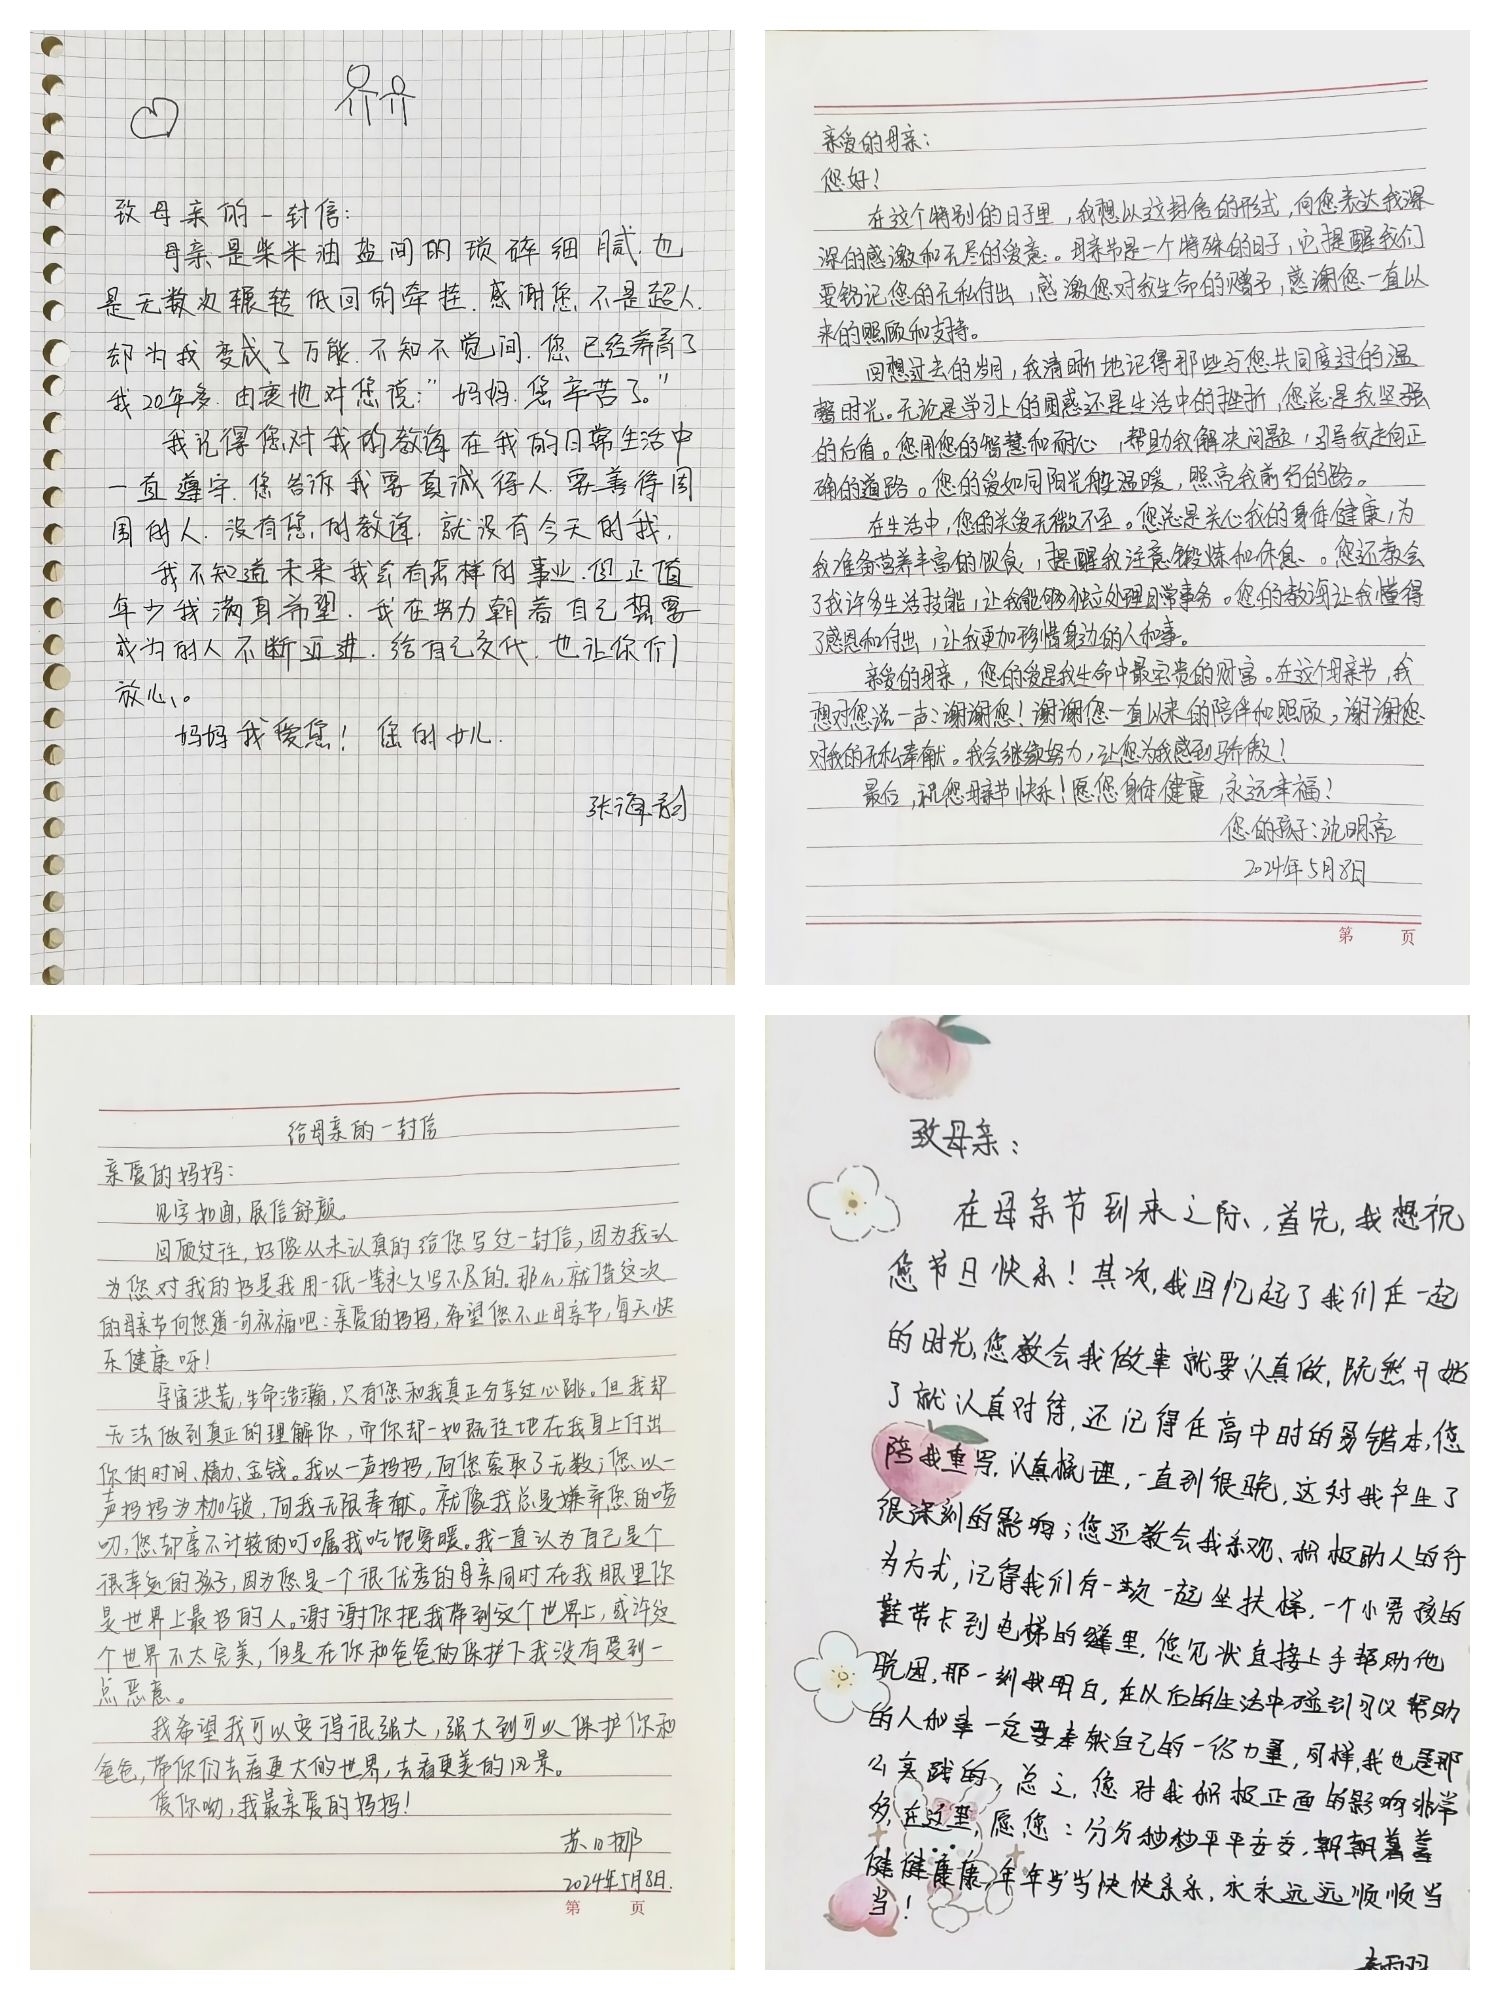 致母亲的一封信:
母亲是柴米油盐间的琐碎细腻.也
是无数次辗转低回的牵挂.感谢您.不是超人.
却为我变成了万能.不知不觉间.您已经养育了
我20年多.由衷地对您说:"妈妈.您辛苦了。"
我记得您对我的教诲在我的日常生活中
一直遵守.您告诉我要真诚待人.要善待周
围的人.没有您的教诲.就没有今天的我.
我不知道未来我会有怎样的事业.但正值
年少我满身希望.我在努力朝着自己想要
成为的人不断迈进.给自己交代.也让你们
放心。
妈妈我爱您!您的女儿.
张海
亲爱的母亲:
您好!
在这个特别的日子里,我想以这封信的形式,向您表达我深
深的感激和无尽的爱意。母亲节是一个特殊的日子,它提醒我们
要铭记您的无私付出,感激您对我生命的赠予,感谢您一直以
来的照顾和支持。
回想过去的岁月,我清晰地记得那些与您共同度过的温
馨时光。无论是学习上的困惑还是生活中的挫折,您总是我坚强
的后盾。您用您的智慧和耐心,帮助我解决问题,引导我走向正
确的道路。您的爱如同阳光般温暖,照亮我前行的路。
在生活中,您的关爱无微不至。您总是关心我的身体健康,为
我准备营养丰富的饮食,提醒我注意锻炼和休息。您还教会
了我许多生活技能,让我能够独立处理日常事务。您的教诲让我懂得
了感恩和付出,让我更加珍惜身边的人和事。
亲爱的母亲,您的爱是我生命中最宝贵的财富。在这个母亲节,我
想对您说一声:谢谢您!谢谢您一直以来的陪伴和照顾,谢谢您
对我的无私奉献。我会继续努力,让您为我感到骄傲!
最后,祝您母亲节快乐!愿您身体健康,永远幸福!
您的孩子:沈明亮
2024年5月8日
第 页
给母亲的一封信
亲爱的妈妈:
见字如面,展信舒颜。
回顾过往,好像从未认真的给您写过一封信,因为我认
为您对我的好是我用一纸一笔永久写不尽的。那么,就借这次
的母亲节向您道一句祝福吧:亲爱的妈妈,希望您不止母亲节,每天快
乐健康呀!
宇宙洪荒,生命浩瀚,只有您和我真正分享过心跳。但我却
无法做到真正的理解你,而你却一如既往地在我身上付出
你的时间、精力、金钱。我以一声妈妈,向您索取了无数;您以一
声妈妈为枷锁,向我无限奉献。就像我总是嫌弃您的唠
叨,您却毫不计较的叮嘱我吃饱穿暖。我一直认为自己是个
很幸运的孩子,因为您是一个很优秀的母亲同时在我眼里你
是世界上最好的人。谢谢你把我带到这个世界上,或许这
个世界不太完美,但是在你和爸爸的保护下我没有受到一
点恶意。
我希望我可以变得很强大,强大到可以保护你和
爸爸,带你们去看更大的世界,去看更美的风景。
爱你呦,我最亲爱的妈妈!
苏日娜
2024年5月8日.
第 页
致母亲:
在母亲节到来之际,首先,我想祝
您节日快乐!其次,我回忆起了我们在一起
的时光,您教会我做事就要认真做,既然开始
了就认真对待,还记得在高中时的易错本,您
陪我重写,认真梳理,一直到很晚,这对我产生了
很深刻的影响;您还教会我乐观、积极助人的行
为方式,记得我们有一次一起坐扶梯,一个小男孩的
鞋带卡到电梯的缝里,您见状直接上手帮助他
脱困,那一刻我明白,在以后的生活中碰到可以帮助
的人和事一定要奉献自己的一份力量,同样,我也是那
么实践的,总之,您对我积极正面的影响非常
多,在这里,愿您:分分秒秒平平安安,朝朝暮暮
健健康康,年年岁岁快快乐乐,永永远远顺顺当
当!